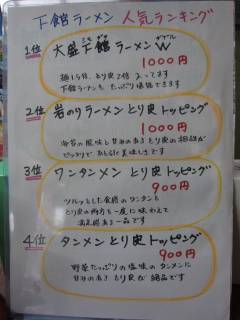 下館ラーメン 人気ランキング
1位
大盛下館ラーメンW
ダブル
1000円
麺1.5倍、とり皮2倍 入ってます
下館ラーメンを たっぷり 堪能できます
2位
岩のりラーメン とり皮 トッピング
1000円
海苔の風味と 甘みのある とり皮の 相性が
ピッタリで あと引く 美味しさです
3位
ワンタンメン とり皮トッピング
900円
ツルッとした食感の ワンタンと
とり皮の 両方を一度に 味わえて
満足感ある一品です
4位
タンメン とり皮トッピング
900円
野菜たっぷりの 塩味の タンメンに
甘みのある とり皮 が 絶品です